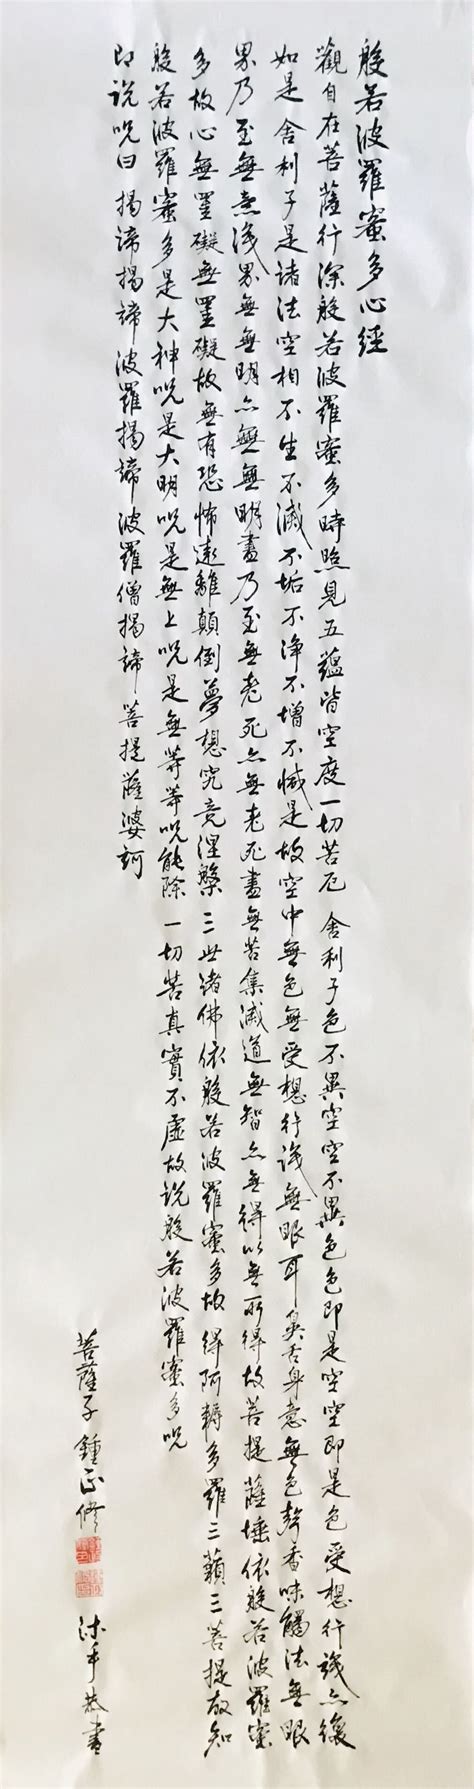 般若波羅蜜多心經
觀自在菩薩行深般若波羅蜜多時照見五蘊皆空度一切苦厄舍利子色不異空空不異色色即是空空即是色受想行識亦復
如是舍利子是諸法空相不生不滅不垢不淨不增不減是故空中無色無受想行識無眼耳鼻舌身意無色聲香味觸法無眼
界乃至無意識界無無明亦無無明盡乃至無老死亦無老死盡無苦集滅道無智亦無得以無所得故菩提薩埵依般若波羅蜜
多故心無罣礙無罣礙故無有恐怖遠離顛倒夢想究竟涅槃三世諸佛依般若波羅蜜多故得阿耨多羅三藐三菩提故知
般若波羅蜜多是大神咒是大明咒是無上咒是無等等咒能除一切苦真實不虛故說般若波羅蜜多咒
即說咒曰揭諦揭諦波羅揭諦波羅僧揭諦菩提薩婆訶
菩薩子鍾正修沐手恭書